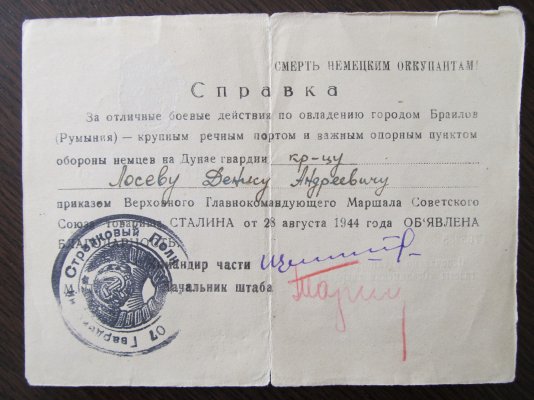 СМЕРТЬ НЕМЕЦКИМ ОККУПАНТАМ!
Справка
За отличные боевые действия по овладению городом Браилов
(Румыния) — крупным речным портом и важным опорным пунктом
обороны немцев на Дунае гвардии кр-цу
Лосеву Денису Андреевичу
приказом Верховного Главнокомандующего Маршала Советского
Союза товарища СТАЛИНА от 28 августа 1944 года ОБ'ЯВЛЕНА
БЛАГОДАРНОСТЬ.
Командир части
Начальник штаба
Стрелковый Полк